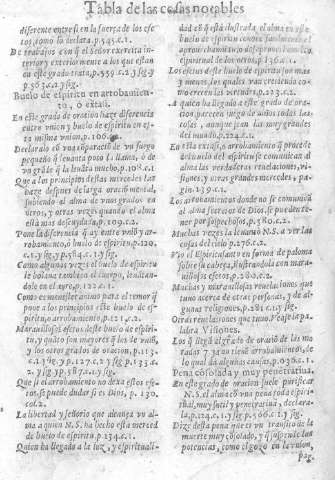 Tabla de las cosas notables
diferente entre si en la fuerza de los efe
tos, como lo declara, p.545.c.1.
De trabajos con q̃ el Señor exercita in-
terior y exteriormente a los que estan
en este grado trata, p.559.c.2.y sig. y
p.563.c.1.y sig.
Buelo de espiritu en arrobamien-
to, ò extasi.
En este grado de oracion haze diferencia
entre vnion y buelo de espiritu en es-
ta misma vnion, p.106.
pequeño q̃ leuanta poco la llama, ò de
vn grãde q̃ la leuãta mucho, p.
Que a los principios destas mercedes las
haze despues de larga oraciõ mental,
subiendo al alma de vnos grados en
otros, y otras vezes quando el alma
està mas descuydada, p.109.c.2.
Pone la diferencia q̃ ay entre vniõ y ar-
robamiento, ò buelo de espiritu, p.120.
c.1.y sig. y p.584.c.1.y sig.
Como algunas vezes el buelo de espiritu
le bolaua tambien el cuerpo, leuantan-
dole en el ayre, p.122.c.1.
Como es menester animo para el temor q̃
pone a los principios este buelo de es-
piritu, o arrobamiento, p.121.c.2.
Marauillosos efetos deste buelo de espiri-
tu, y quãto son mayores q̃ los de vniõ,
y los otros grados de oracion, p.113.
y sig. y p.587.c.1.y sig.
Que si el arrobamiento no dexa estos efe-
tos, se puede dudar si es Dios, p. 130.
col.2.
La libertad y señorio que alcança vn al-
ma a quien N.S. ha hecho esta merced
de buelo de espiritu, p. 134.c.1.
Quan ha llegado a la luz, y espirituali-
dad està ilustrada, el alma en este
buelo de espiritu conoce
aprouechamiento
espiritual de los otros, p.136.c.1.
Los efetos deste buelo de espiritu son mas
y menos, los quales van creciendo co-
mo crecen las virtudes, p.223.c.2.
A quien ha llegado a este grado de ora-
cion parecen juego de niños todas las
cosas, aunque sean las muy grandes
del mundo, p.224.c.1.
En esta extasi, o arrobamiento q̃ procede
del buelo del espiritu se comunican al
alma las verdaderas reuelaciones, vi-
siones, y otras grandes mercedes, pa-
gin.139.c.1.
Los arrobamientos donde no se comunicã
al alma secretos de Dios, se pueden te-
ner por sospechosos, p.380.c.2.
Muchas vezes la lleuaua N.S. a ver las
cosas del cielo, p.276.c.2.
Vio el Espiritusanto en forma de paloma
sobre su cabeça, ilustrandola con mara-
uillosos efetos, p.280.c.2.
Muchas y marauillosas reuelaciones que
tuuo acerca de otras personas, y de al-
gunas religiones, p.295.c.1.y sig.
Otras reuelaciones que tuuo. Veaselapa
labra Visiones.
Los q̃ llegã a este grado de oraciõ de las mo
radas 7. ya no tienẽ arrobamiento, de
lo qual da algunas causas, p.638.c.1.
Pena congoxosa y muy penetratiua.
En este grado de oracion suele purificar
N.S. el alma cõ vna pena toda espi-
ritual, muy sutil y penetratiua, declara-
la, p.124.c.1.y sig. p.506.c.1.y sig.
Dize desta pena que es vn transito de la
muerte muy congoxoso, y q̃ suspende las
potencias, como el gozo en la vnion,
pag.